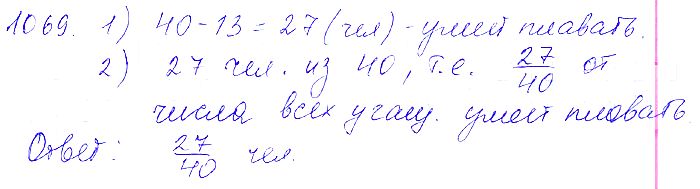 1069. 1) 40-13 = 27 (чел) - умеют плавать.
2) 27 чел. из 40, т.е. 27/40 от
числа всех учащ. умеют плавать.
Ответ: 27/40 чел.